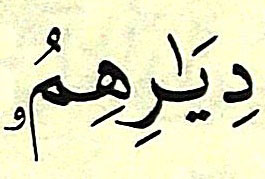 دِيَٰرِهِمُۥ